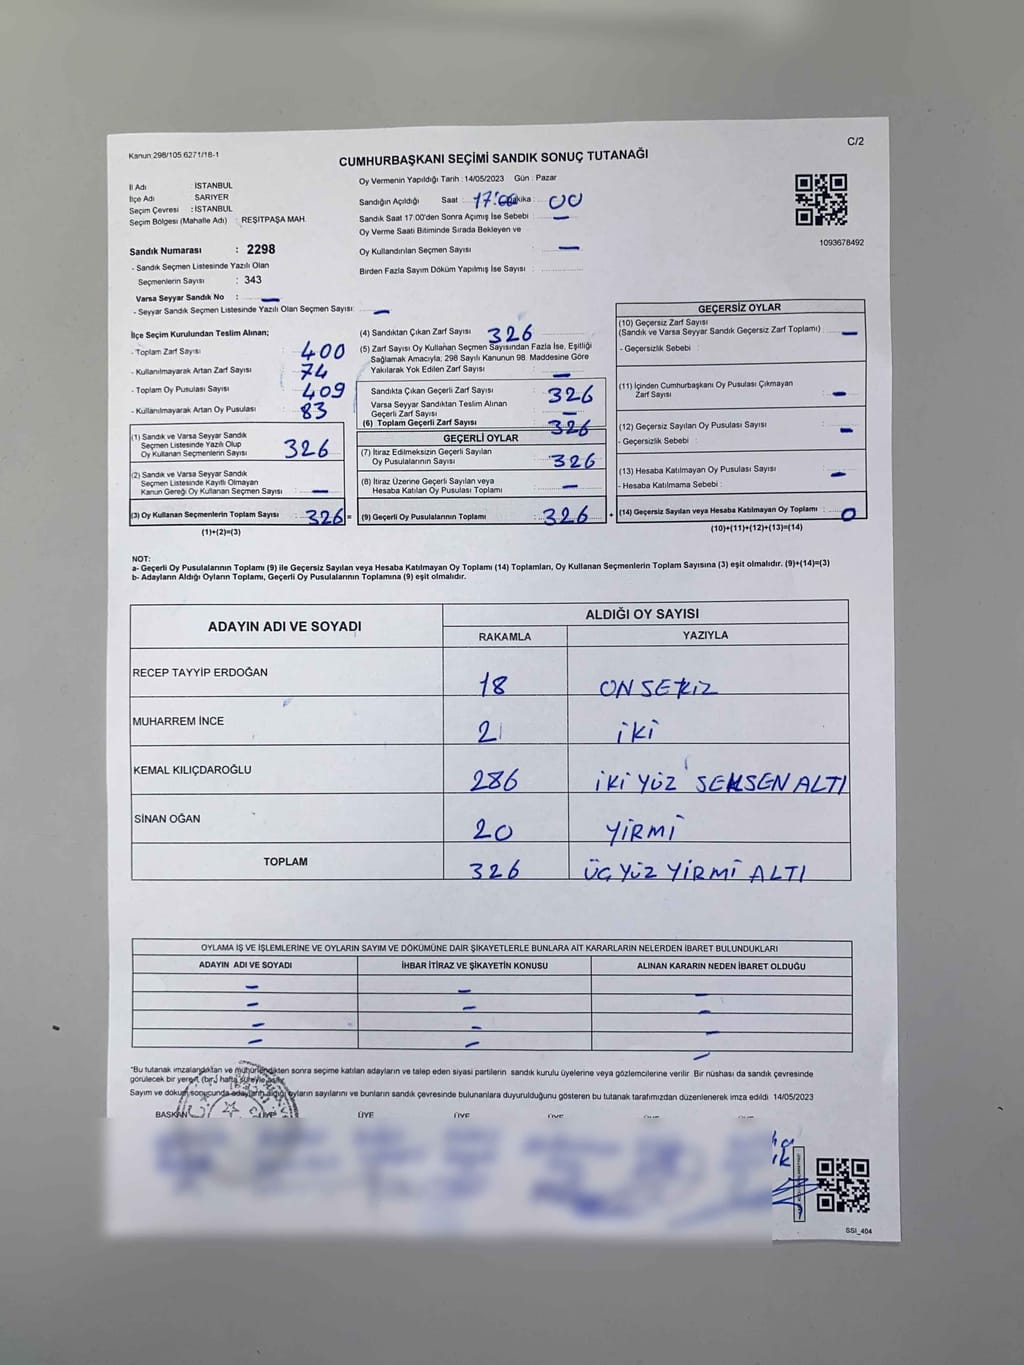 C/2
Kanun:298/105.6271/18-1
CUMHURBAŞKANI SEÇİMİ SANDIK SONUÇ TUTANAĞI
İl Adı İSTANBUL
İlçe Adı SARIYER
Seçim Çevresi : İSTANBUL
Seçim Bölgesi (Mahalle Adı) : REŞİTPAŞA MAH.
Sandık Numarası : 2298
- Sandık Seçmen Listesinde Yazılı Olan
Seçmenlerin Sayısı : 343
Varsa Seyyar Sandık No : –
- Seyyar Sandık Seçmen Listesinde Yazılı Olan Seçmen Sayısı: –
Oy Vermenin Yapıldığı Tarih :14/05/2023 Gün : Pazar
Sandığın Açıldığı Saat : 17:00 Dakika : 00
Sandık Saat 17.00'den Sonra Açımış İse Sebebi : –
Oy Verme Saati Bitiminde Sırada Bekleyen ve
Oy Kullandırılan Seçmen Sayısı : –
Birden Fazla Sayım Döküm Yapılmış İse Sayısı :
1093678492
İlçe Seçim Kurulundan Teslim Alınan;
- Toplam Zarf Sayısı : 400
- Kullanılmayarak Artan Zarf Sayısı : 74
- Toplam Oy Pusulası Sayısı : 409
- Kullanılmayarak Artan Oy Pusulası : 83
(1) Sandık ve Varsa Seyyar Sandık
Seçmen Listesinde Yazılı Olup
Oy Kullanan Seçmenlerin Sayısı : 326
(2) Sandık ve Varsa Seyyar Sandık
Seçmen Listesinde Kayıtlı Olmayan
Kanun Gereği Oy Kullanan Seçmen Sayısı : –
(3) Oy Kullanan Seçmenlerin Toplam Sayısı : 326 =
(1)+(2)=(3)
(4) Sandıktan Çıkan Zarf Sayısı : 326
(5) Zarf Sayısı Oy Kullanan Seçmen Sayısından Fazla İse, Eşitliği
Sağlamak Amacıyla; 298 Sayılı Kanunun 98. Maddesine Göre
Yakılarak Yok Edilen Zarf Sayısı : –
Sandıkta Çıkan Geçerli Zarf Sayısı : 326
Varsa Seyyar Sandıktan Teslim Alınan
Geçerli Zarf Sayısı : –
(6) Toplam Geçerli Zarf Sayısı : 326
GEÇERLİ OYLAR
(7) İtiraz Edilmeksizin Geçerli Sayılan
Oy Pusulalarının Sayısı : 326
(8) İtiraz Üzerine Geçerli Sayılan veya
Hesaba Katılan Oy Pusulası Toplamı : –
(9) Geçerli Oy Pusulalarının Toplamı : 326 +
GEÇERSİZ OYLAR
(10) Geçersiz Zarf Sayısı
(Sandık ve Varsa Seyyar Sandık Geçersiz Zarf Toplamı) : –
- Geçersizlik Sebebi :
(11) İçinden Cumhurbaşkanı Oy Pusulası Çıkmayan
Zarf Sayısı : –
(12) Geçersiz Sayılan Oy Pusulası Sayısı : –
- Geçersizlik Sebebi :
(13) Hesaba Katılmayan Oy Pusulası Sayısı : –
- Hesaba Katılmama Sebebi :
(14) Geçersiz Sayılan veya Hesaba Katılmayan Oy Toplamı : 0
(10)+(11)+(12)+(13)=(14)
NOT:
a- Geçerli Oy Pusulalarının Toplamı (9) ile Geçersiz Sayılan veya Hesaba Katılmayan Oy Toplamı (14) Toplamları, Oy Kullanan Seçmenlerin Toplam Sayısına (3) eşit olmalıdır. (9)+(14)=(3)
b- Adayların Aldığı Oyların Toplamı, Geçerli Oy Pusulalarının Toplamına (9) eşit olmalıdır.
ADAYIN ADI VE SOYADI ALDIĞI OY SAYISI
RAKAMLA YAZIYLA
RECEP TAYYİP ERDOĞAN 18 ON SEKİZ
MUHARREM İNCE 2 İKİ
KEMAL KILIÇDAROĞLU 286 İKİ YÜZ SEKSEN ALTI
SİNAN OĞAN 20 YİRMİ
TOPLAM 326 ÜÇ YÜZ YİRMİ ALTI
OYLAMA İŞ VE İŞLEMLERİNE VE OYLARIN SAYIM VE DÖKÜMÜNE DAİR ŞİKAYETLERLE BUNLARA AİT KARARLARIN NELERDEN İBARET BULUNDUKLARI
ADAYIN ADI VE SOYADI İHBAR İTİRAZ VE ŞİKAYETİN KONUSU ALINAN KARARIN NEDEN İBARET OLDUĞU
– – –
– – –
– – –
– – –
*Bu tutanak imzalandıktan ve mühürlendikten sonra seçime katılan adayların ve talep eden siyasi partilerin sandık kurulu üyelerine veya gözlemcilerine verilir. Bir nüshası da sandık çevresinde
görülecek bir yere (bir) hafta süreyle asılır.
Sayım ve döküm sonucunda adayların aldığı oyların sayılarını ve bunların sandık çevresinde bulunanlara duyurulduğunu gösteren bu tutanak tarafımızdan düzenlenerek imza edildi. 14/05/2023
BAŞKAN ÜYE ÜYE ÜYE ÜYE
SSI_404